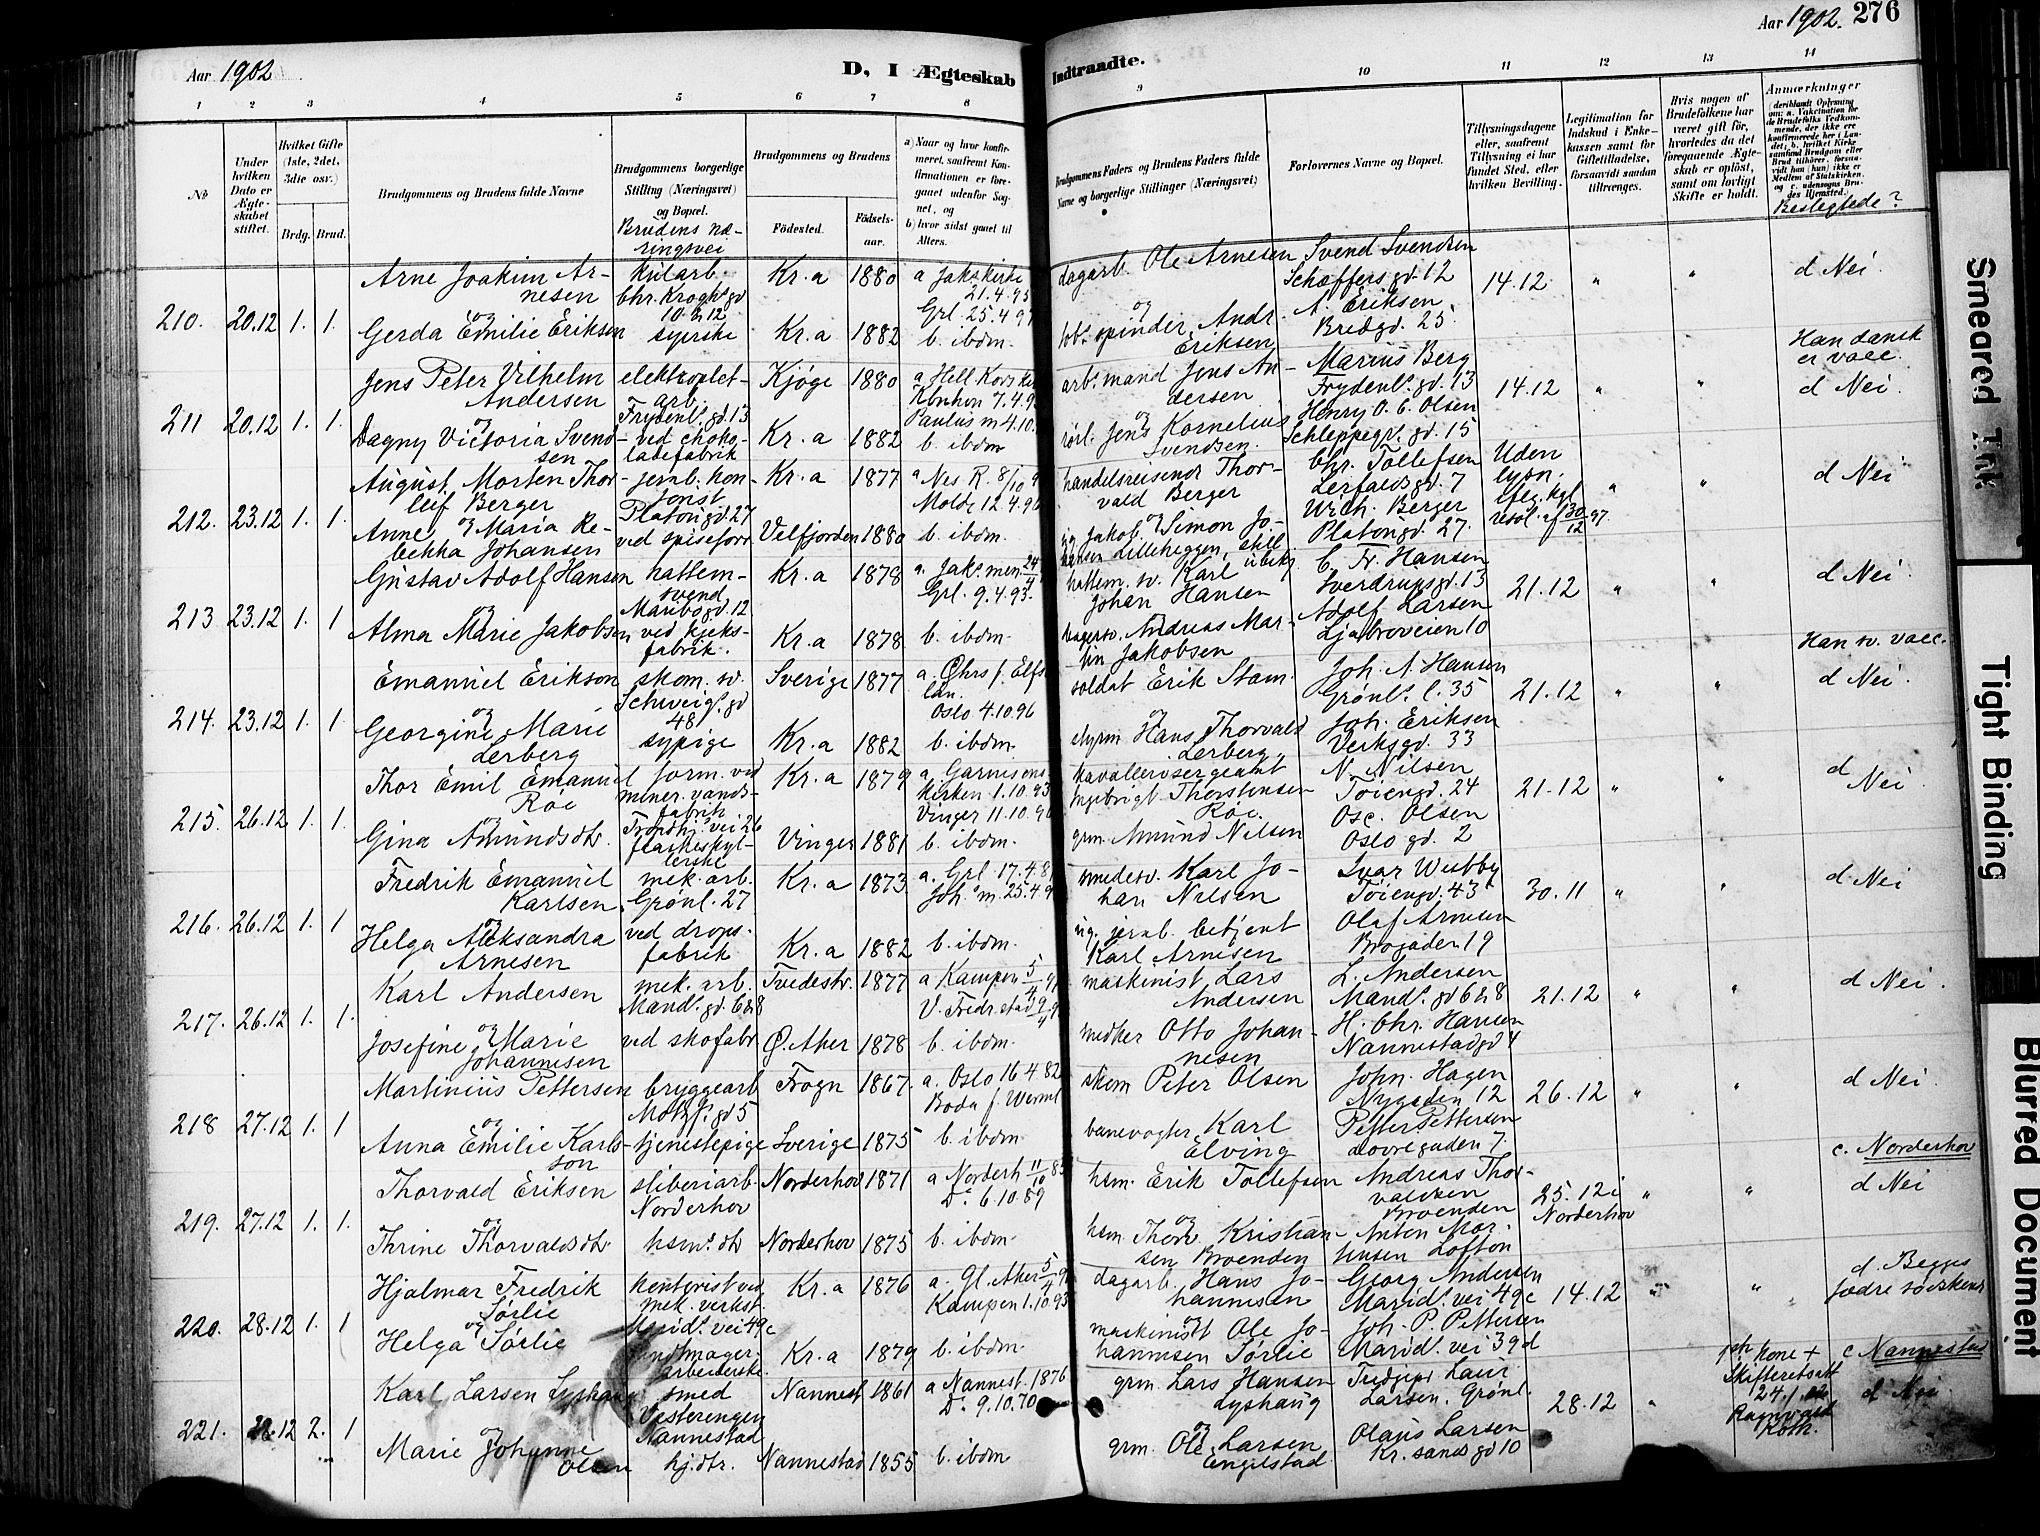 Aar 1902
D, I Ægteskab
Indtraadte.
Aar 1902. 276
1 2 3 4 5 6 7 8 9 10 11 12 13 14
No
Under hvilken Dato er Ægteskabet stiftet.
Hvilket Gifte (1ste, 2det, 3die osv.)
Brdg. Brud.
Brudgommens og Brudens fulde Navne
Brudgommens borgerlige Stilling (Næringsvei) og Bopæl.
Brudens næringsvei
Brudgommens og Brudens
Födested. Födselsaar.
a) Naar og hvor konfirmeret, saafremt Konfirmationen er foregaaet udenfor Sognet, og
b) hvor sidst gaaet til Alters.
Brudgommens Faders og Brudens Faders fulde Navne og borgerlige Stillinger (Næringsvei)
Forlovernes Navne og Bopæl.
Tillysningsdagene eller, saafremt Tillysning ei har fundet Sted, efter hvilken Bevilling.
Legitimation for Indskud i Enkekassen samt for Giftetilladelse, forsaavidt saadan tiltrænges.
Hvis nogen af Brudefolkene har været gift för, hvorledes da det foregaaende Ægteskab er oplöst, samt om lovligt Skifte er holdt.
Anmærkninger
Beslegtede?
210. 20.12 1. 1.
Arne Joakim Arnesen
Chr. Kroghs gd 10 & 12
Kr.a 1880
a Jakskirke 21.4.95
Grl. 25.4.97
dagarb. Ole Arnesen
Svend Svendsen
Schæffers gd. 12
14.12 " "
d Nei.
og
Gerda Emilie Eriksen
syerske
Kr.a 1882
b. ibdm.
Andr. Eriksen
A. Eriksen
Bredgd. 25.
211 20.12 1. 1.
Jens Peter Vilhelm Andersen
elektroplet-arb.
Frydenl. gd. 13
Kjöge 1880
arb.mand Jens Andersen
Marius Berg
Frydenl. gd. 13
14.12 " "
Han dansk er vacc.
d Nei.
og
Dagny Victoria Svendsen
ved chokoladefabrik
Kr.a 1882
b. ibdm
Jens Kornelius Svendsen.
Henry O. C. Olsen
Schleppegr. gd. 15
212. 23.12 1. 1.
August Morten Thorleif Berger
Platougd. 27
Kr.a 1877
Molde 12.4.96
handelsreisende Thorvald Berger
Chr. Tollefsen
Lerfaldsgd. 7
Uden lysn.
" "
d Nei
og
Anne Maria Rebekka Johansen
ved spiseforr
Velfjorden 1880
b. ibdm.
Jakob Simon Johansen Lilleheggen,
Wilh. Berger
Platougd. 27.
213 23.12 1. 1
Gustav Adolf Hansen
hattem-svend
Maribogd. 12
Kr.a 1878
Grl. 9.4.93.
hattem. sv. Karl Johan Hansen
C. Fr. Hansen
Sverdrupsgd. 13
21.12 " "
d Nei.
og
Alma Marie Jakobsen
ved kjeks-fabrik.
Kr.a 1878
b. ibdm.
Andreas Martin Jakobsen
Adolf Larsen
Ljabroveien 10
214. 23.12 1. 1.
Emanuel Erikson
skom. sv.
Schweig. gd 48
Sverige 1877
Oslo 4.10.96
soldat Erik Stam.
Joh. A. Hansen
Grönl. l. 35
21.12 " "
Han sv. vacc.
d Nei.
og
Georgine Marie Lerberg
sypige
Kr.a 1882
b. ibdm.
Hans Thorvald Lerberg.
Joh. Eriksen
Verksgd. 33
215. 26.12 1. 1.
Thor Emil Emanuel Roe
form. ved miner. vands-fabrik
Trondh. vei 26
Kr.a 1879
a. Garnisons kirken 1.10.93
Vinger 11.10.96
kavallerisergeant Ingebrigt Thorstensen Roe.
N. Nilsen
Töiengd. 24
21.12 " "
d Nei
og
Gina Amundsdtr.
flaskeskyllerske
Vinger 1881
b. ibdm.
grm. Amund Nilsen
Osc. Olsen
Oslo gd. 2
216. 26.12 1. 1
Fredrik Emanuel Karlsen
mek. arb.
Grönl. 27
Kr.a 1873
smedesv. Karl Johan Nilsen
Ivar Wubby
Töiengd. 43
30.11 " "
d Nei
og
Helga Aleksandra Arnesen
ved drops-fabrik
Kr.a 1882
b. ibdm.
jernb. betjent Karl Arnesen
Olaf Arnesen
Brogaden 19
217. 26.12 1. 1.
Karl Andersen
mek. arb.
Mandl. gd. 6 & 8
Tvedestr. 1877
maskinist Lars Andersen
L. Andersen
Mandl. gd 6 & 8
21.12 " "
d Nei.
og
Josefine Marie Johannesen
ved skofabr
Ø. Aker 1878
b. ibdm.
Otto Johannesen
H. Chr. Hansen
Nannestadgd 4
218 27.12 1. 1
Martinius Pettersen
bryggearb
Motzf. gd 5
Frogn 1867.
a. Oslo 16.4.82
Boda f. Werml
Peter Olsen
John. Hagen
Nygaden 12
26.12 " "
d Nei.
og
Anna Emilie Karlsson
tjenestepige
Sverige 1875
b. ibdm.
banevogter Karl Elving
Petter Pettersen
Dovregaden 7.
219. 27.12 1. 1.
Thorvald Eriksen
sliberiarb.
Norderhov
Norderhov 1871
D. 6.10.89
hsm. Erik Tollefsen
Andreas Thorvaldsen Broenden
25.12 i Norderhov
" "
c. Norderhov
d Nei
og
Thrine Thorvaldsdtr.
hsm. dtr
Norderhov 1875
b. ibdm.
hsm. Thorv. Kristiansen Broenden
Anton Martinsen Lofton
220. 28.12 1. 1
Hjalmar Fredrik Sörlie
kontorist ved mek. verkst.
Marid. vei 49c
Kr.a 1876
Kampen 1.10.93
dagarb. Hans Johannesen
Georg Andersen
Marid. vei 49c
14.12 " "
d. Begges fædre södskend
og
Helga Sörlie
Kr.a 1879
b. ibdm.
maskinist Ole Johannesen Sörlie
Joh. P. Pettersen
Marid. vei 39d
221. 28.12 2. 1
Karl Larsen Lyshaug
smed
Vesterengen Nannestad
Nannest 1861
a Nannest. 1876
D. 9.10.70
grm. Lars Hansen Lyshaug
Laur. Larsen, Grönl.
28.12 "
kone +
Skifteretsatt
c Nannestad
d Nei.
og
Marie Johanne Olsen
hj. dtr.
Nannestad 1855
b. ibdm
grm. Ole Larsen Engelstad.
Olaus Larsen
Kr. sands gd 10
Smeared Ink
Tight Binding
Blurred Document